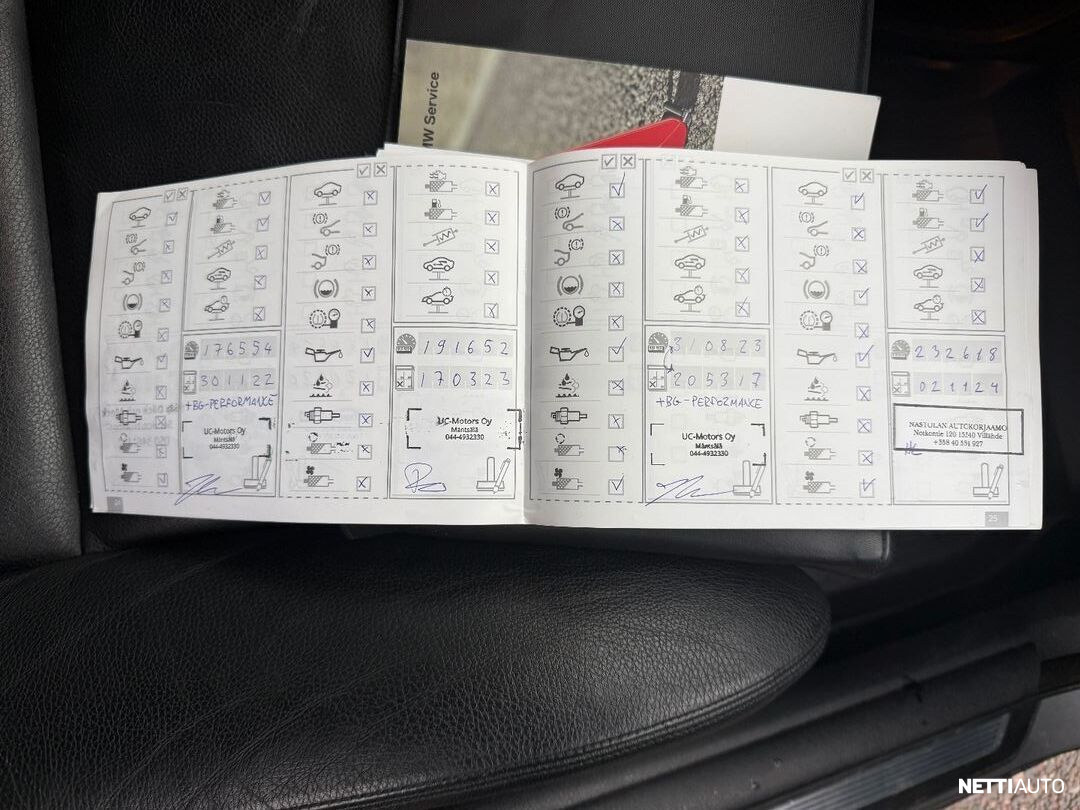 MW Service
176554
301122
+BG-PERFORMANCE
UC-Motors Oy
Mäntsälä
044-4932330
191652
170323
UC-Motors Oy
Mäntsälä
044-4932330
310823
205317
+BG-PERFORMANCE
UC-Motors Oy
Mäntsälä
044-4932330
232618
021124
NASTOLAN AUTOKORJAAMO
+358 40 551 927
25
NETTIAUTO